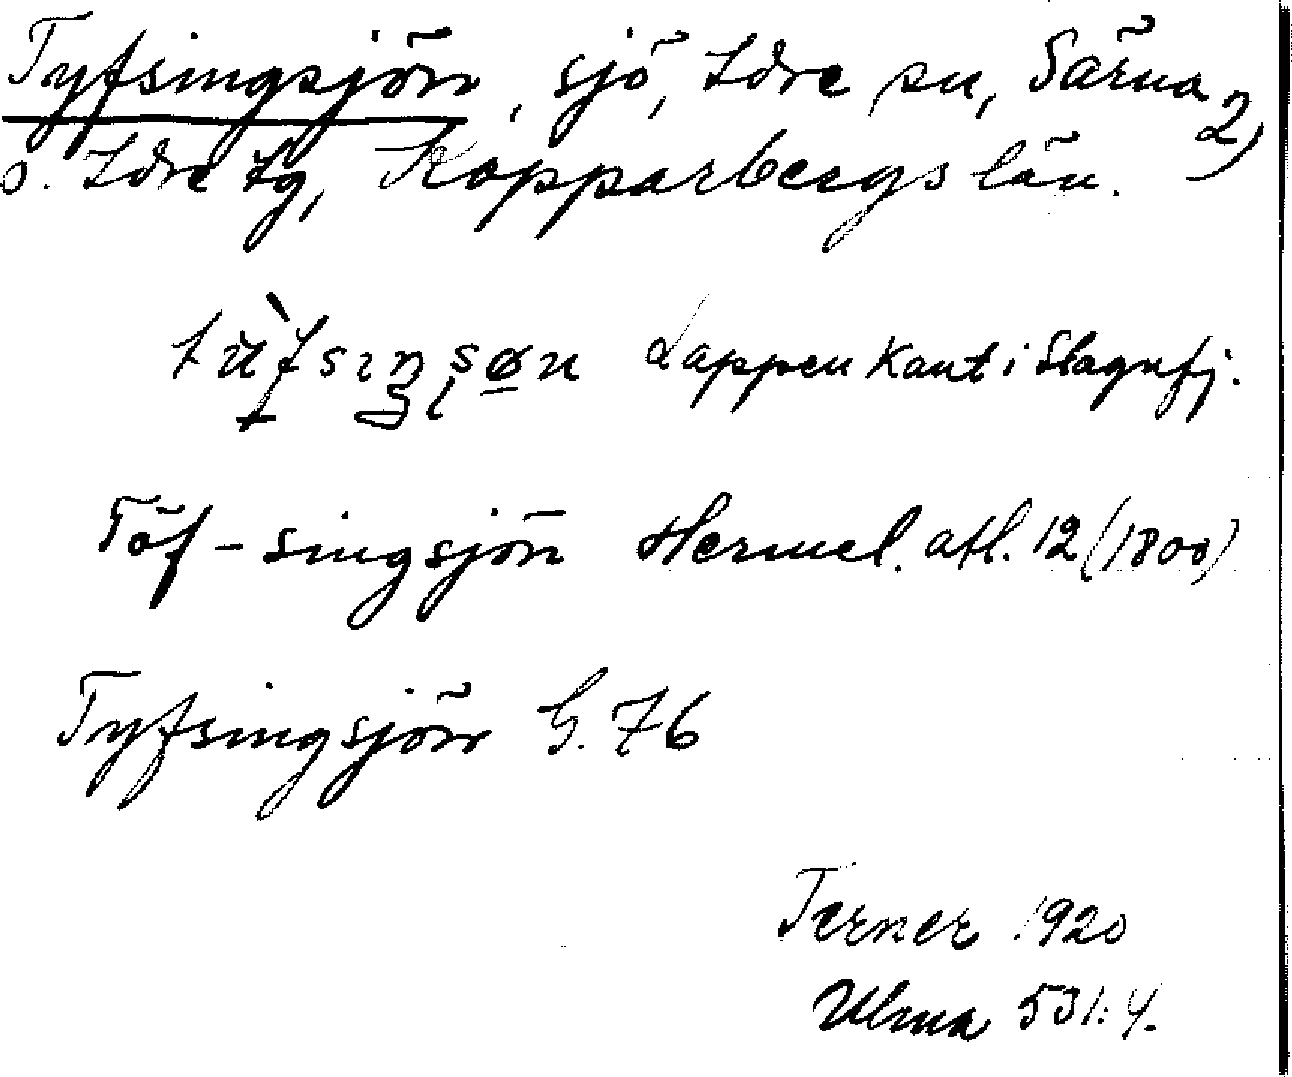 Tyfsingsjön, sjö, Idre sn, Särna 2)
o. Idre tg, Kopparbergs län.
Lappen Kant i Slagufj.
Töf-singsjön Hermel. atl. 12 (1800)
Tyfsingsjön G. 76
Terner 1920
Ulma 531:4.